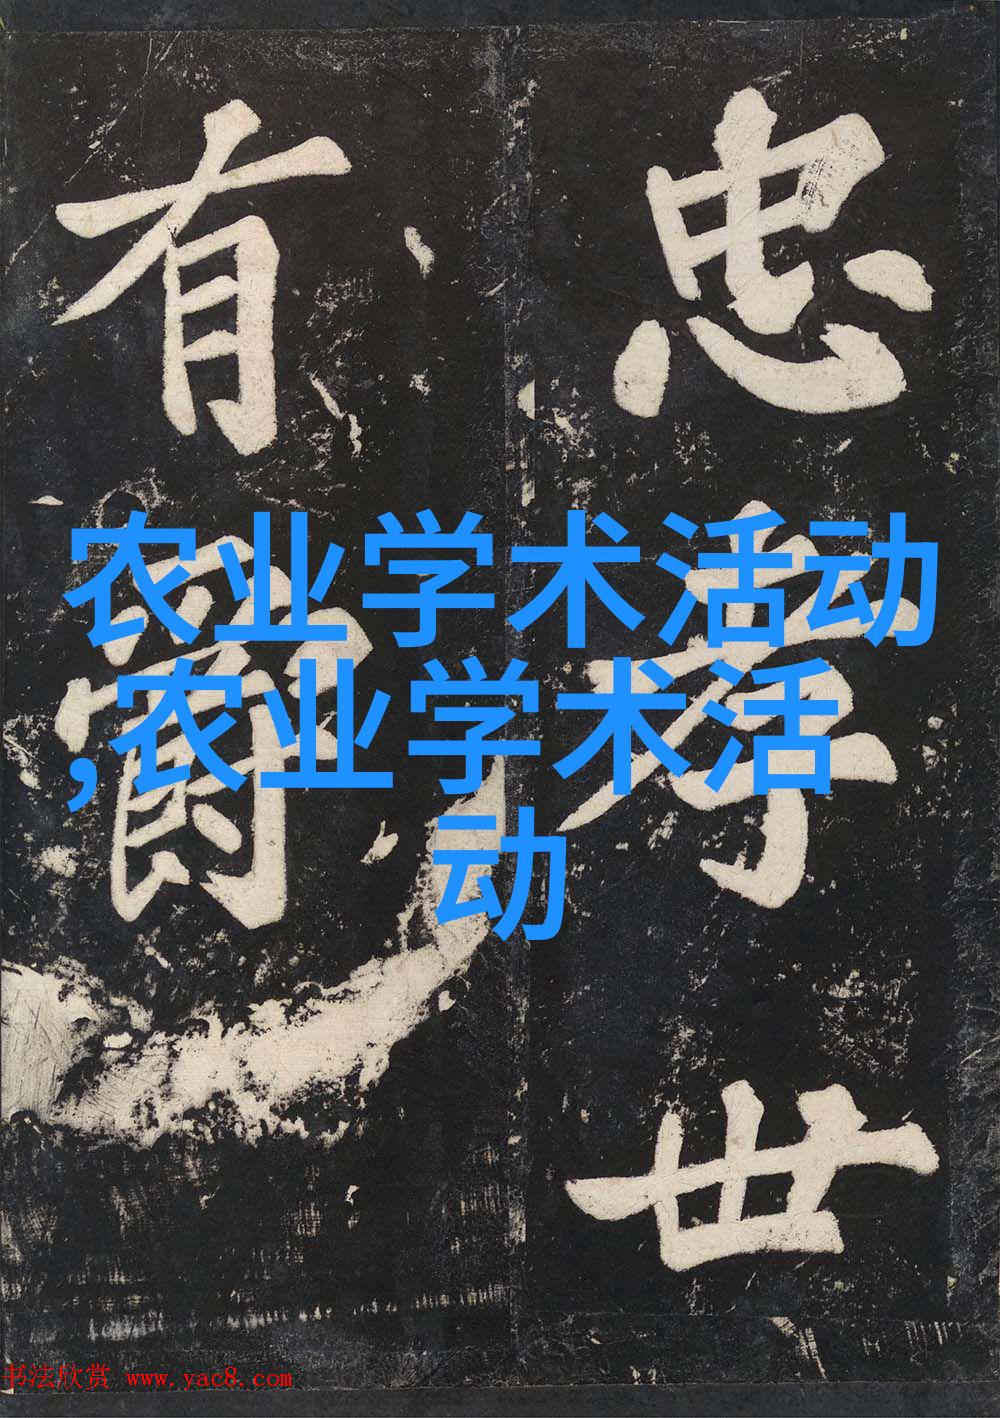 农业学术活动
,农业学术活
动
忠孝世
有
书法欣赏 www.yac8.com